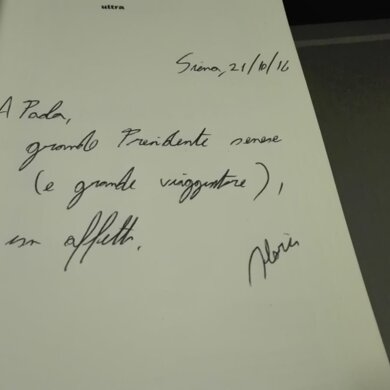 ultra
Siena, 21/10/16
A Paola,
grande Presidente senese
(e grande viaggiatore),
con affetto,